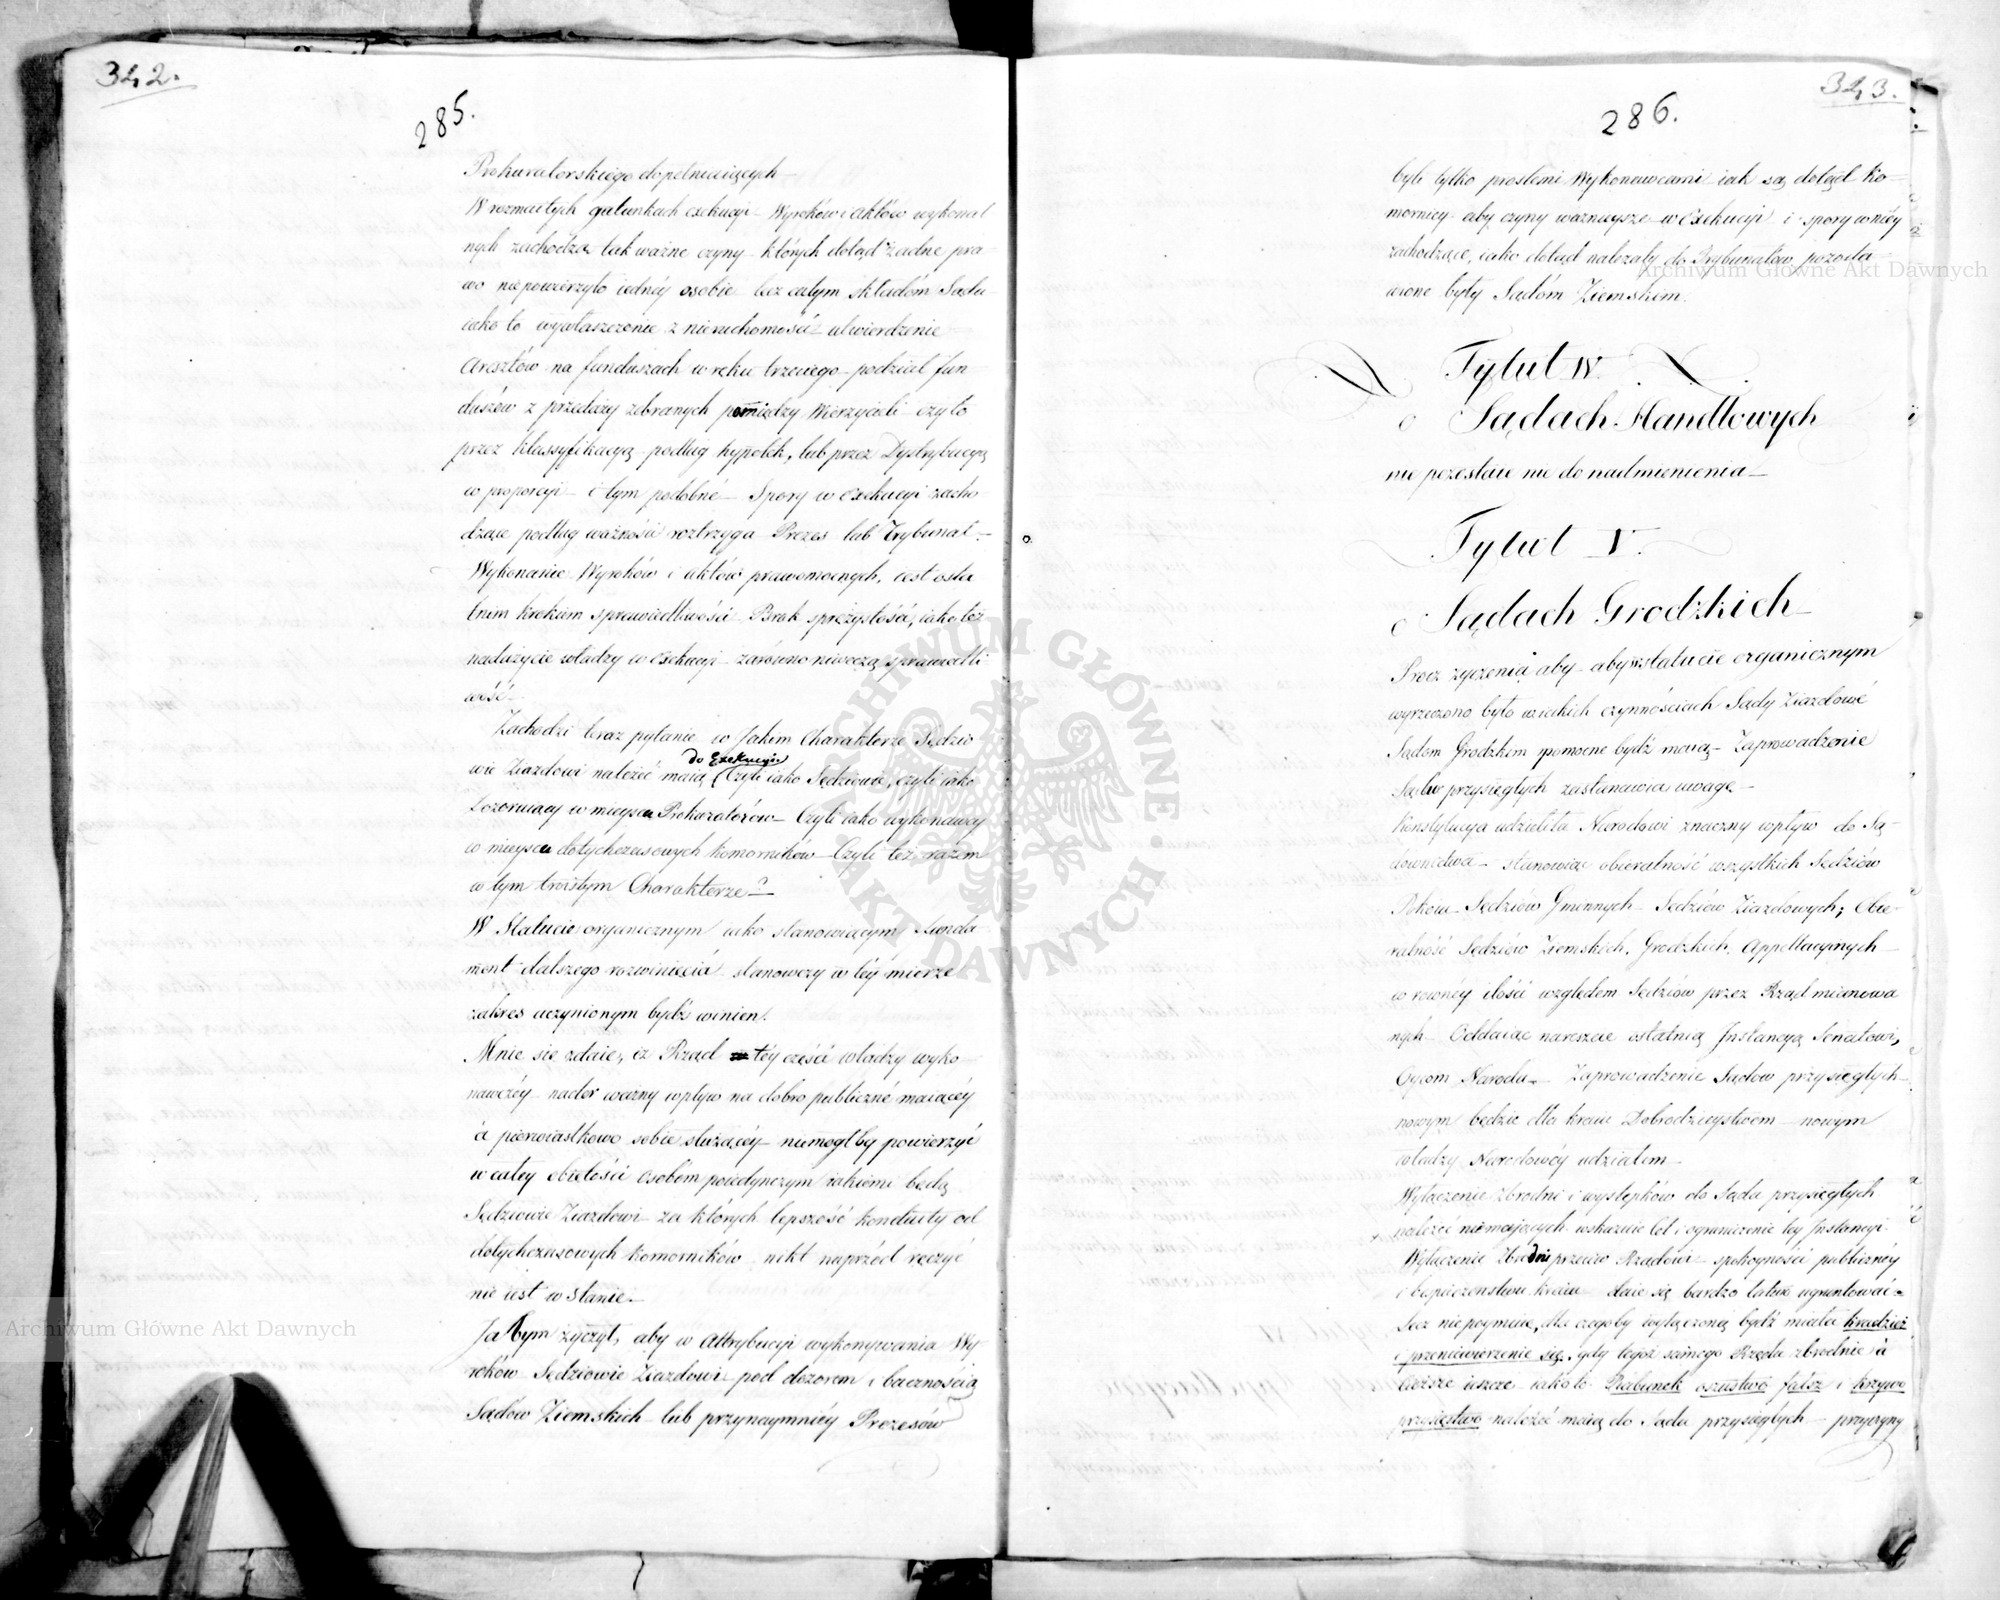 342.
285.
Prokuratorskiego dopełniaiących
W rozmaitych gatunkach exekucyi Wyroków i aktów wykonal
nych zachodzą tak ważne czyny których dotąd żadne pra
wo niepowierzyło iednéy osobie lecz całym składom Sądu
iako to wywłaszczenie z nieruchomości utwierdzenie
Aresztów na funduszach w ręku trzeciego podział fun
duszów z przedaży zebranych pomiędzy Wierzycieli czy to
przez klassyfikacyą podług hypotek, lub przez Dystrybucyą
w proporcyi i tym podobné Spory w exekucyi zacho
dzące podług ważności roztrzyga Prezes lub Trybunał.
Wykonanie Wyroków i aktów prawomocnych, iest osta
tnim krokiem sprawiedliwości Brak sprężystości, iako też
nadużycie władzy w exekucyi zarówno niweczą sprawiedli
wość
Zachodzi teraz pytanie w Jakim Charakterze Sędzio
wie Ziazdowi należeć maią do Exekucyi Czyli iako Sędziowie, czyli iako
Dozoruiący w mieyscu Prokuratorów Czyli iako wykonawcy
w mieyscu dotychczasowych Komorników Czyli też razem
w tym troistym Charakterze?
W Statucie organicznym iako stanowiącym funda
ment dalszego rozwinięcia stanowczy w téy mierze
zakres uczynionym bydź winien.
Mnie się zdaie, iż Rząd téy części władzy wyko
nawczéy nader ważny wpływ na dobro publiczné maiącéy
a pierwiastkowo sobie służącéy niemógłby powierzyć
w całey obiętości osobom poiedynczym iakiemi będą
Sędziowie Ziazdowi za których lepszość konduity od
dotychczasowych Komorników nikt naprzód ręczyć
nie iest w stanie.
Ja bym życzył, aby w Attrybucyi wykonywania Wy
roków Sędziowie Ziazdowi pod dozorem i bacznością
Sądów Ziemskich lub przynaymniéy Prezesów
343.
286.
byli tylko prostemi Wykonawcami iak są dotąd Ko
mornicy aby czyny ważnieysze w exekucyi i spory w niéy
zachodzące, iako dotąd należały do Trybunałów, pozosta
wione były Sądóm Ziemskim.
Tytuł IV.
o Sądach Handlowych
nie pozostaie nic do nadmienienia
Tytuł V.
o Sądach Grodzkich
Prócz życzenia aby aby w statucie organicznym
wyrzeczono było w iakich czynnościach Sądy Ziazdowé
Sądom Grodzkim pomocne bydź maią Zaprowadzenie
Sądów przysięgłych zastanawia uwagę
Konstytucya udzieliła Narodowi znaczny wpływ do Są
downictwa stanowiąc obieralność wszystkich Sędziów
Pokoiu Sędziów Gminnych Sędziów Ziazdowych; Obie
ralność Sędziów Ziemskich, Grodzkich, Appellacyinych
w równéy ilości względem Sędziów przez Rząd mianowa
nych Oddaiąc nareszcie ostatnią Instancyą Senatowi,
Oycom Narodu. Zaprowadzenie Sądów przysięgłych
nowym będzie dla kraiu Dobrodzieystwem nowym
władzy Narodowéy udziałem
Wyłączenie zbrodni i występków do Sądu przysięgłych
należeć niemaiących wskazuie cel i ograniczenie tey Instancyi
Wyłączenie Zbrodni przeciw Rządowi spokoyności publicznéy
i bezpieczeństwu kraiu daie się bardzo łatwo ugruntować
Lecz niepoymuię, dla czegoby wyłączoną bydź miała kradzież
i przeniewierzenie się, gdy tegoż samego Rzędu zbrodnie a
Cięższe ieszcze iako to Rabunek oszustwo fałsz i krzywo
przysięstwo należeć maią do Sądu przysięgłych przyczyny
Archiwum Główne Akt Dawnych
Archiwum Główne Akt Dawnych
ARCHIWUM GŁÓWNE AKT DAWNYCH